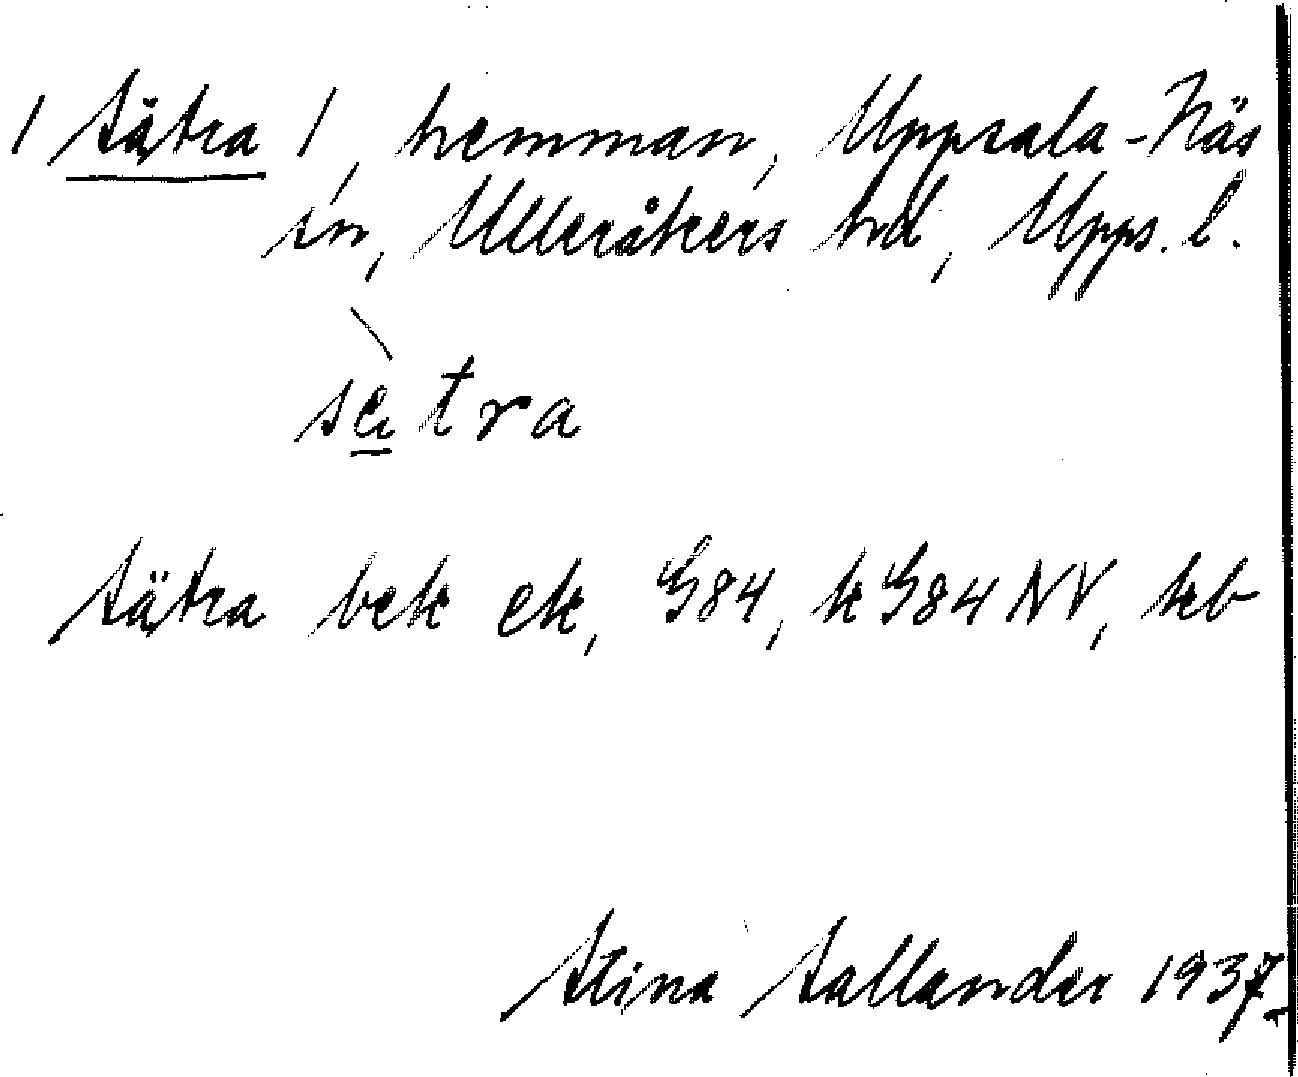 / Sätra /, hemman, Uppsala-Näs
sn, Ulleråkers hd, Upps. l.
sätra
Sätra bek ek, G84, kG84NV, kb
Stina Sallander 1937